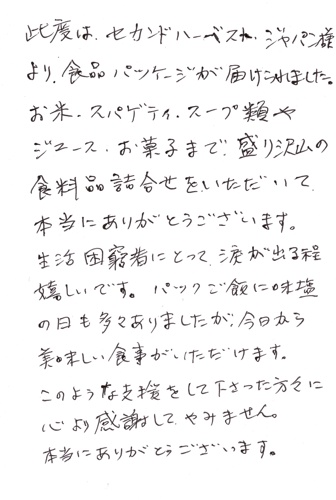 此度は、セカンドハーベスト・ジャパン様
より、食品パッケージが届けられました。
お米・スパゲティ・スープ類や
ジュース・お菓子まで、盛り沢山の
食料品詰合せをいただいて、
本当にありがとうございます。
生活困窮者にとって、涙が出る程
嬉しいです。パックご飯に味塩
の日も多々ありましたが、今日から
美味しい食事がいただけます。
このような支援をして下さった方々に
心より感謝してやみません。
本当にありがとうございます。